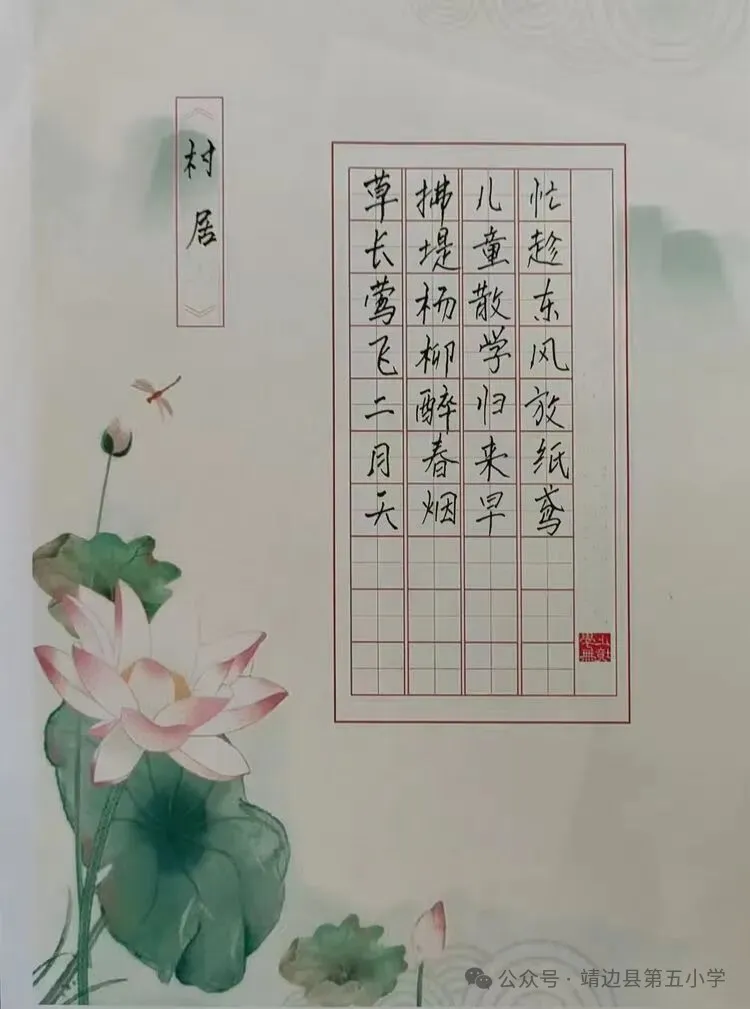 《村居》
草长莺飞二月天
拂堤杨柳醉春烟
儿童散学归来早
忙趁东风放纸鸢
公众号·靖边县第五小学